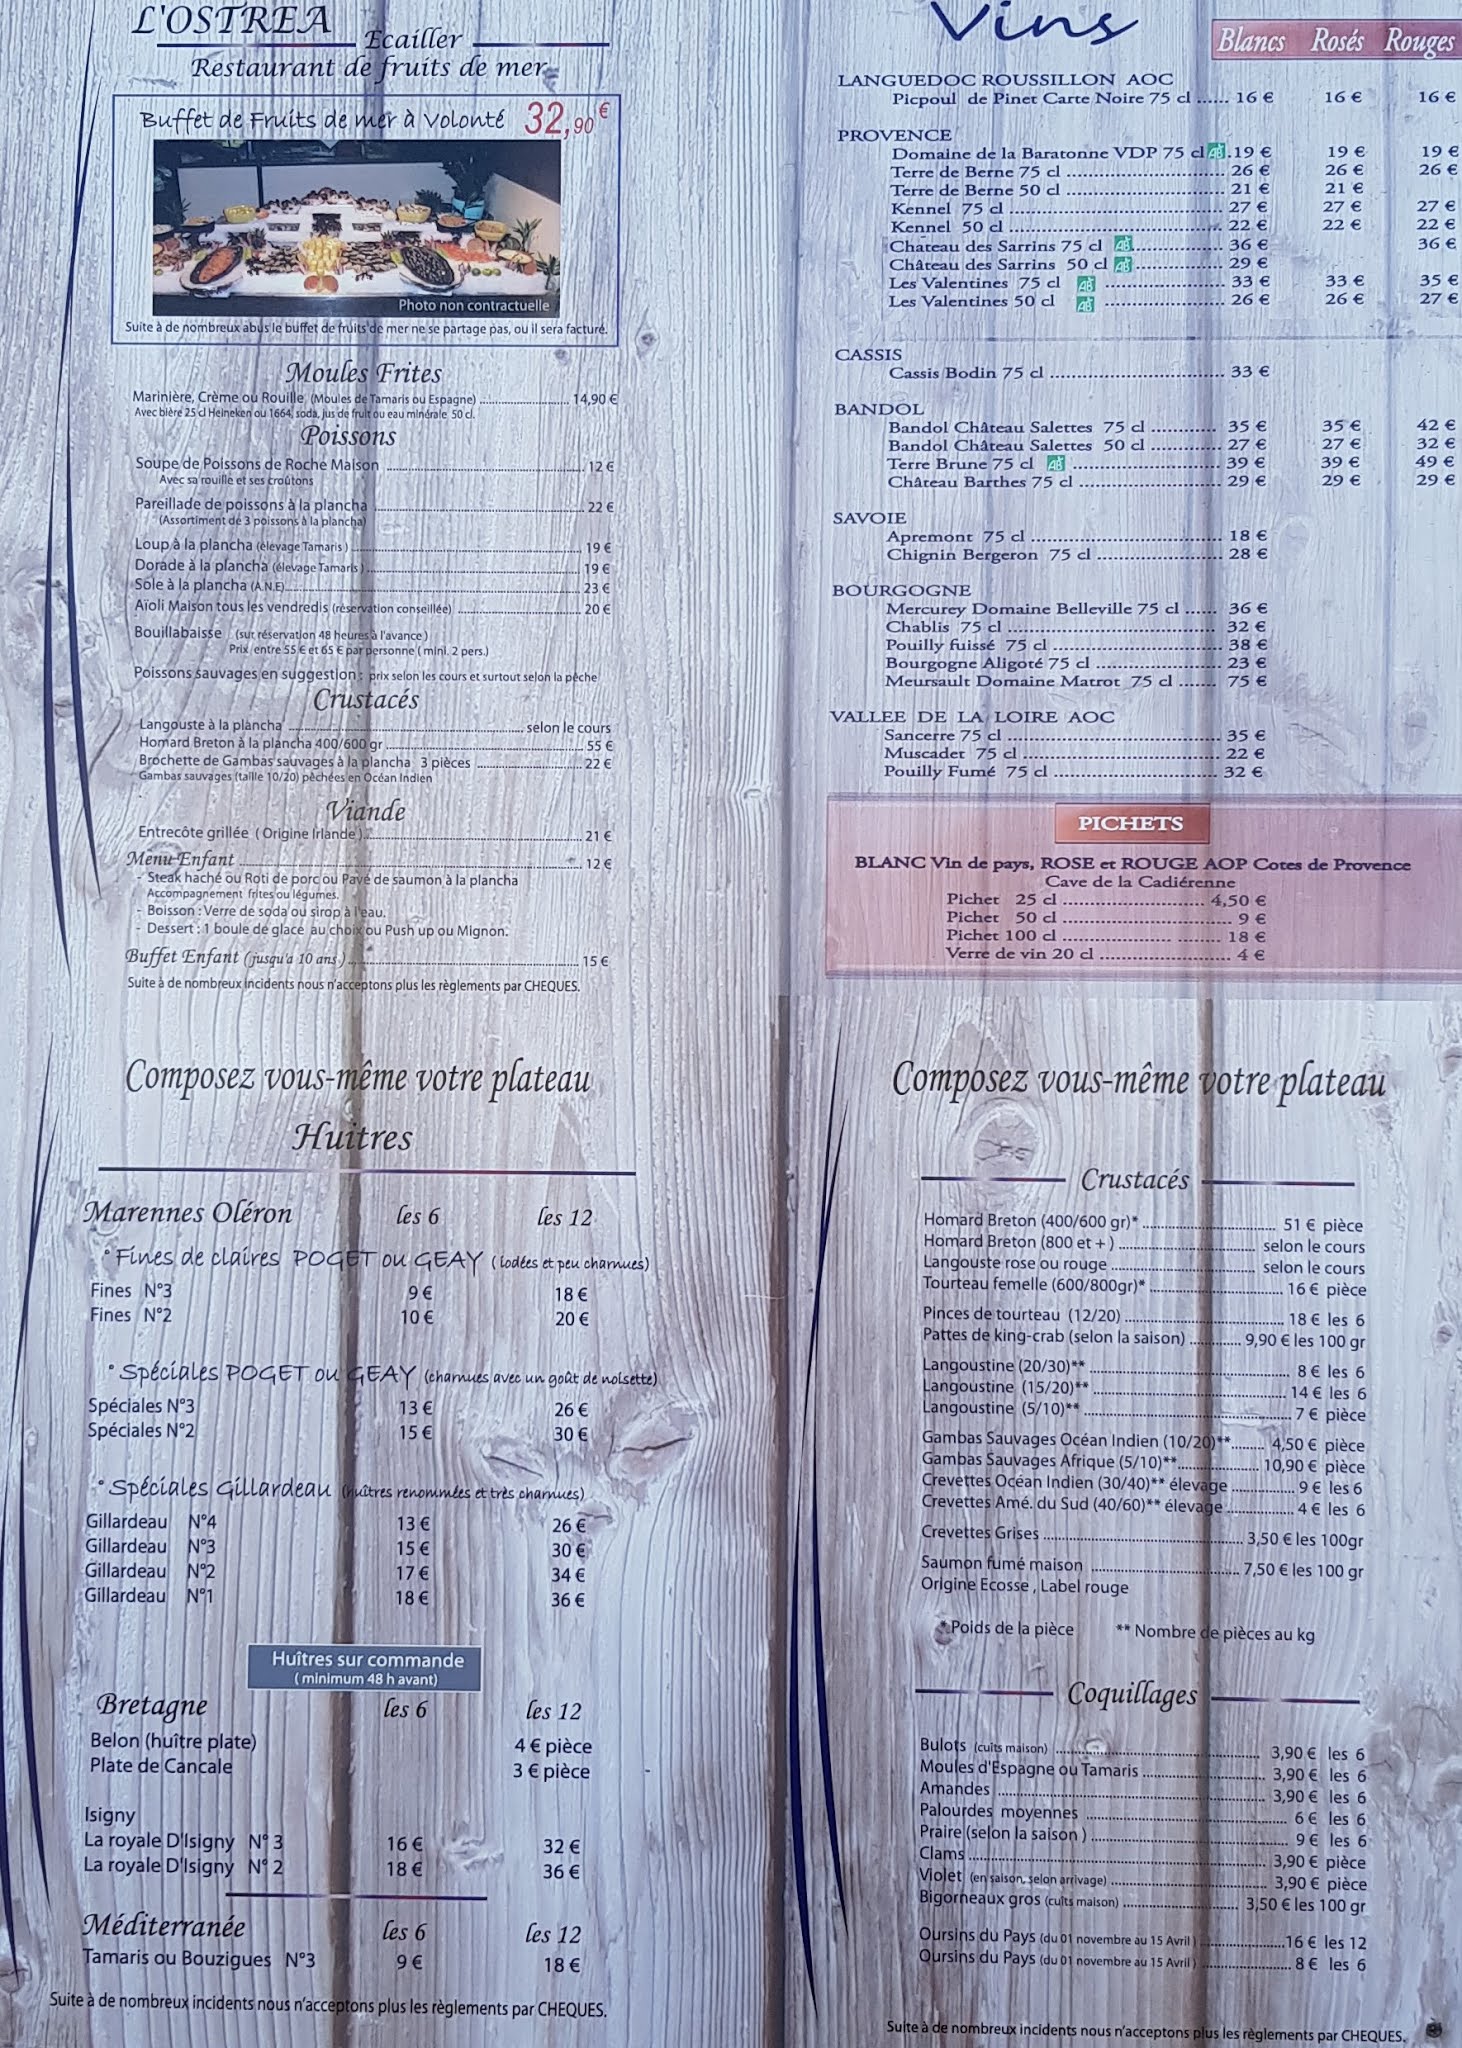 L'OSTREA
Ecailler
Restaurant de fruits de mer
Buffet de Fruits de mer à Volonté 32,90 €
Photo non contractuelle
Suite à de nombreux abus le buffet de fruits de mer ne se partage pas, ou il sera facturé.
Moules Frites
Marinière, Crème ou Rouille (Moules de Tamaris ou Espagne) 14,90 €
Avec bière 25 cl Heineken ou 1664, soda, jus de fruit ou eau minérale 50 cl.
Poissons
Soupe de Poissons de Roche Maison 12 €
Avec sa rouille et ses croûtons
Pareillade de poissons à la plancha 22 €
(Assortiment de 3 poissons à la plancha)
Loup à la plancha (élevage Tamaris) 19 €
Dorade à la plancha (élevage Tamaris) 19 €
Sole à la plancha (A.N.E) 23 €
Aïoli Maison tous les vendredis (réservation conseillée) 20 €
Bouillabaisse (sur réservation 48 heures à l'avance)
Prix entre 55 € et 65 € par personne (mini. 2 pers.)
Poissons sauvages en suggestion : prix selon les cours et surtout selon la pêche
Crustacés
Langouste à la plancha selon le cours
Homard Breton à la plancha 400/600 gr 55 €
Brochette de Gambas sauvages à la plancha 3 pièces 22 €
Gambas sauvages (taille 10/20) pêchées en Océan Indien
Viande
Entrecôte grillée (Origine Irlande) 21 €
Menu Enfant 12 €
- Steak haché ou Roti de porc ou Pavé de saumon à la plancha
Accompagnement frites ou légumes.
- Boisson : Verre de soda ou sirop à l'eau.
- Dessert : 1 boule de glace au choix ou Push up ou Mignon.
Buffet Enfant (jusqu'a 10 ans) 15 €
Suite à de nombreux incidents nous n'acceptons plus les règlements par CHEQUES.
Vins
Blancs Rosés Rouges
LANGUEDOC ROUSSILLON AOC
Picpoul de Pinet Carte Noire 75 cl 16 € 16 € 16 €
PROVENCE
Domaine de la Baratonne VDP 75 cl AB 19 € 19 € 19 €
Terre de Berne 75 cl 26 € 26 € 26 €
Terre de Berne 50 cl 21 € 21 €
Kennel 75 cl 27 € 27 € 27 €
Kennel 50 cl 22 € 22 € 22 €
Chateau des Sarrins 75 cl AB 36 € 36 €
Château des Sarrins 50 cl AB 29 €
Les Valentines 75 cl AB 33 € 33 € 35 €
Les Valentines 50 cl AB 26 € 26 € 27 €
CASSIS
Cassis Bodin 75 cl 33 €
BANDOL
Bandol Château Salettes 75 cl 35 € 35 € 42 €
Bandol Château Salettes 50 cl 27 € 27 € 32 €
Terre Brune 75 cl AB 39 € 39 € 49 €
Château Barthes 75 cl 29 € 29 € 29 €
SAVOIE
Apremont 75 cl 18 €
Chignin Bergeron 75 cl 28 €
BOURGOGNE
Mercurey Domaine Belleville 75 cl 36 €
Chablis 75 cl 32 €
Pouilly fuissé 75 cl 38 €
Bourgogne Aligoté 75 cl 23 €
Meursault Domaine Matrot 75 cl 75 €
VALLEE DE LA LOIRE AOC
Sancerre 75 cl 35 €
Muscadet 75 cl 22 €
Pouilly Fumé 75 cl 32 €
PICHETS
BLANC Vin de pays, ROSE et ROUGE AOP Cotes de Provence
Cave de la Cadiérenne
Pichet 25 cl 4,50 €
Pichet 50 cl 9 €
Pichet 100 cl 18 €
Verre de vin 20 cl 4 €
Composez vous-même votre plateau
Huitres
Marennes Oléron les 6 les 12
° Fines de claires POGET ou GEAY (iodées et peu charnues)
Fines N°3 9 € 18 €
Fines N°2 10 € 20 €
° Spéciales POGET ou GEAY (charnues avec un goût de noisette)
Spéciales N°3 13 € 26 €
Spéciales N°2 15 € 30 €
° Spéciales Gillardeau (huîtres renommées et très charnues)
Gillardeau N°4 13 € 26 €
Gillardeau N°3 15 € 30 €
Gillardeau N°2 17 € 34 €
Gillardeau N°1 18 € 36 €
Huîtres sur commande
(minimum 48 h avant)
Bretagne les 6 les 12
Belon (huître plate) 4 € pièce
Plate de Cancale 3 € pièce
Isigny
La royale D'Isigny N° 3 16 € 32 €
La royale D'Isigny N° 2 18 € 36 €
Méditerranée les 6 les 12
Tamaris ou Bouzigues N°3 9 € 18 €
Suite à de nombreux incidents nous n'acceptons plus les règlements par CHEQUES.
Composez vous-même votre plateau
Crustacés
Homard Breton (400/600 gr)* 51 € pièce
Homard Breton (800 et +) selon le cours
Langouste rose ou rouge selon le cours
Tourteau femelle (600/800gr)* 16 € pièce
Pinces de tourteau (12/20) 18 € les 6
Pattes de king-crab (selon la saison) 9,90 € les 100 gr
Langoustine (20/30)** 8 € les 6
Langoustine (15/20)** 14 € les 6
Langoustine (5/10)** 7 € pièce
Gambas Sauvages Océan Indien (10/20)** 4,50 € pièce
Gambas Sauvages Afrique (5/10)** 10,90 € pièce
Crevettes Océan Indien (30/40)** élevage 9 € les 6
Crevettes Amé. du Sud (40/60)** élevage 4 € les 6
Crevettes Grises 3,50 € les 100gr
Saumon fumé maison 7,50 € les 100 gr
Origine Ecosse, Label rouge
* Poids de la pièce ** Nombre de pièces au kg
Coquillages
Bulots (cuits maison) 3,90 € les 6
Moules d'Espagne ou Tamaris 3,90 € les 6
Amandes 3,90 € les 6
Palourdes moyennes 6 € les 6
Praire (selon la saison) 9 € les 6
Clams 3,90 € pièce
Violet (en saison, selon arrivage) 3,90 € pièce
Bigorneaux gros (cuits maison) 3,50 € les 100 gr
Oursins du Pays (du 01 novembre au 15 Avril) 16 € les 12
Oursins du Pays (du 01 novembre au 15 Avril) 8 € les 6
Suite à de nombreux incidents nous n'acceptons plus les règlements par CHEQUES.